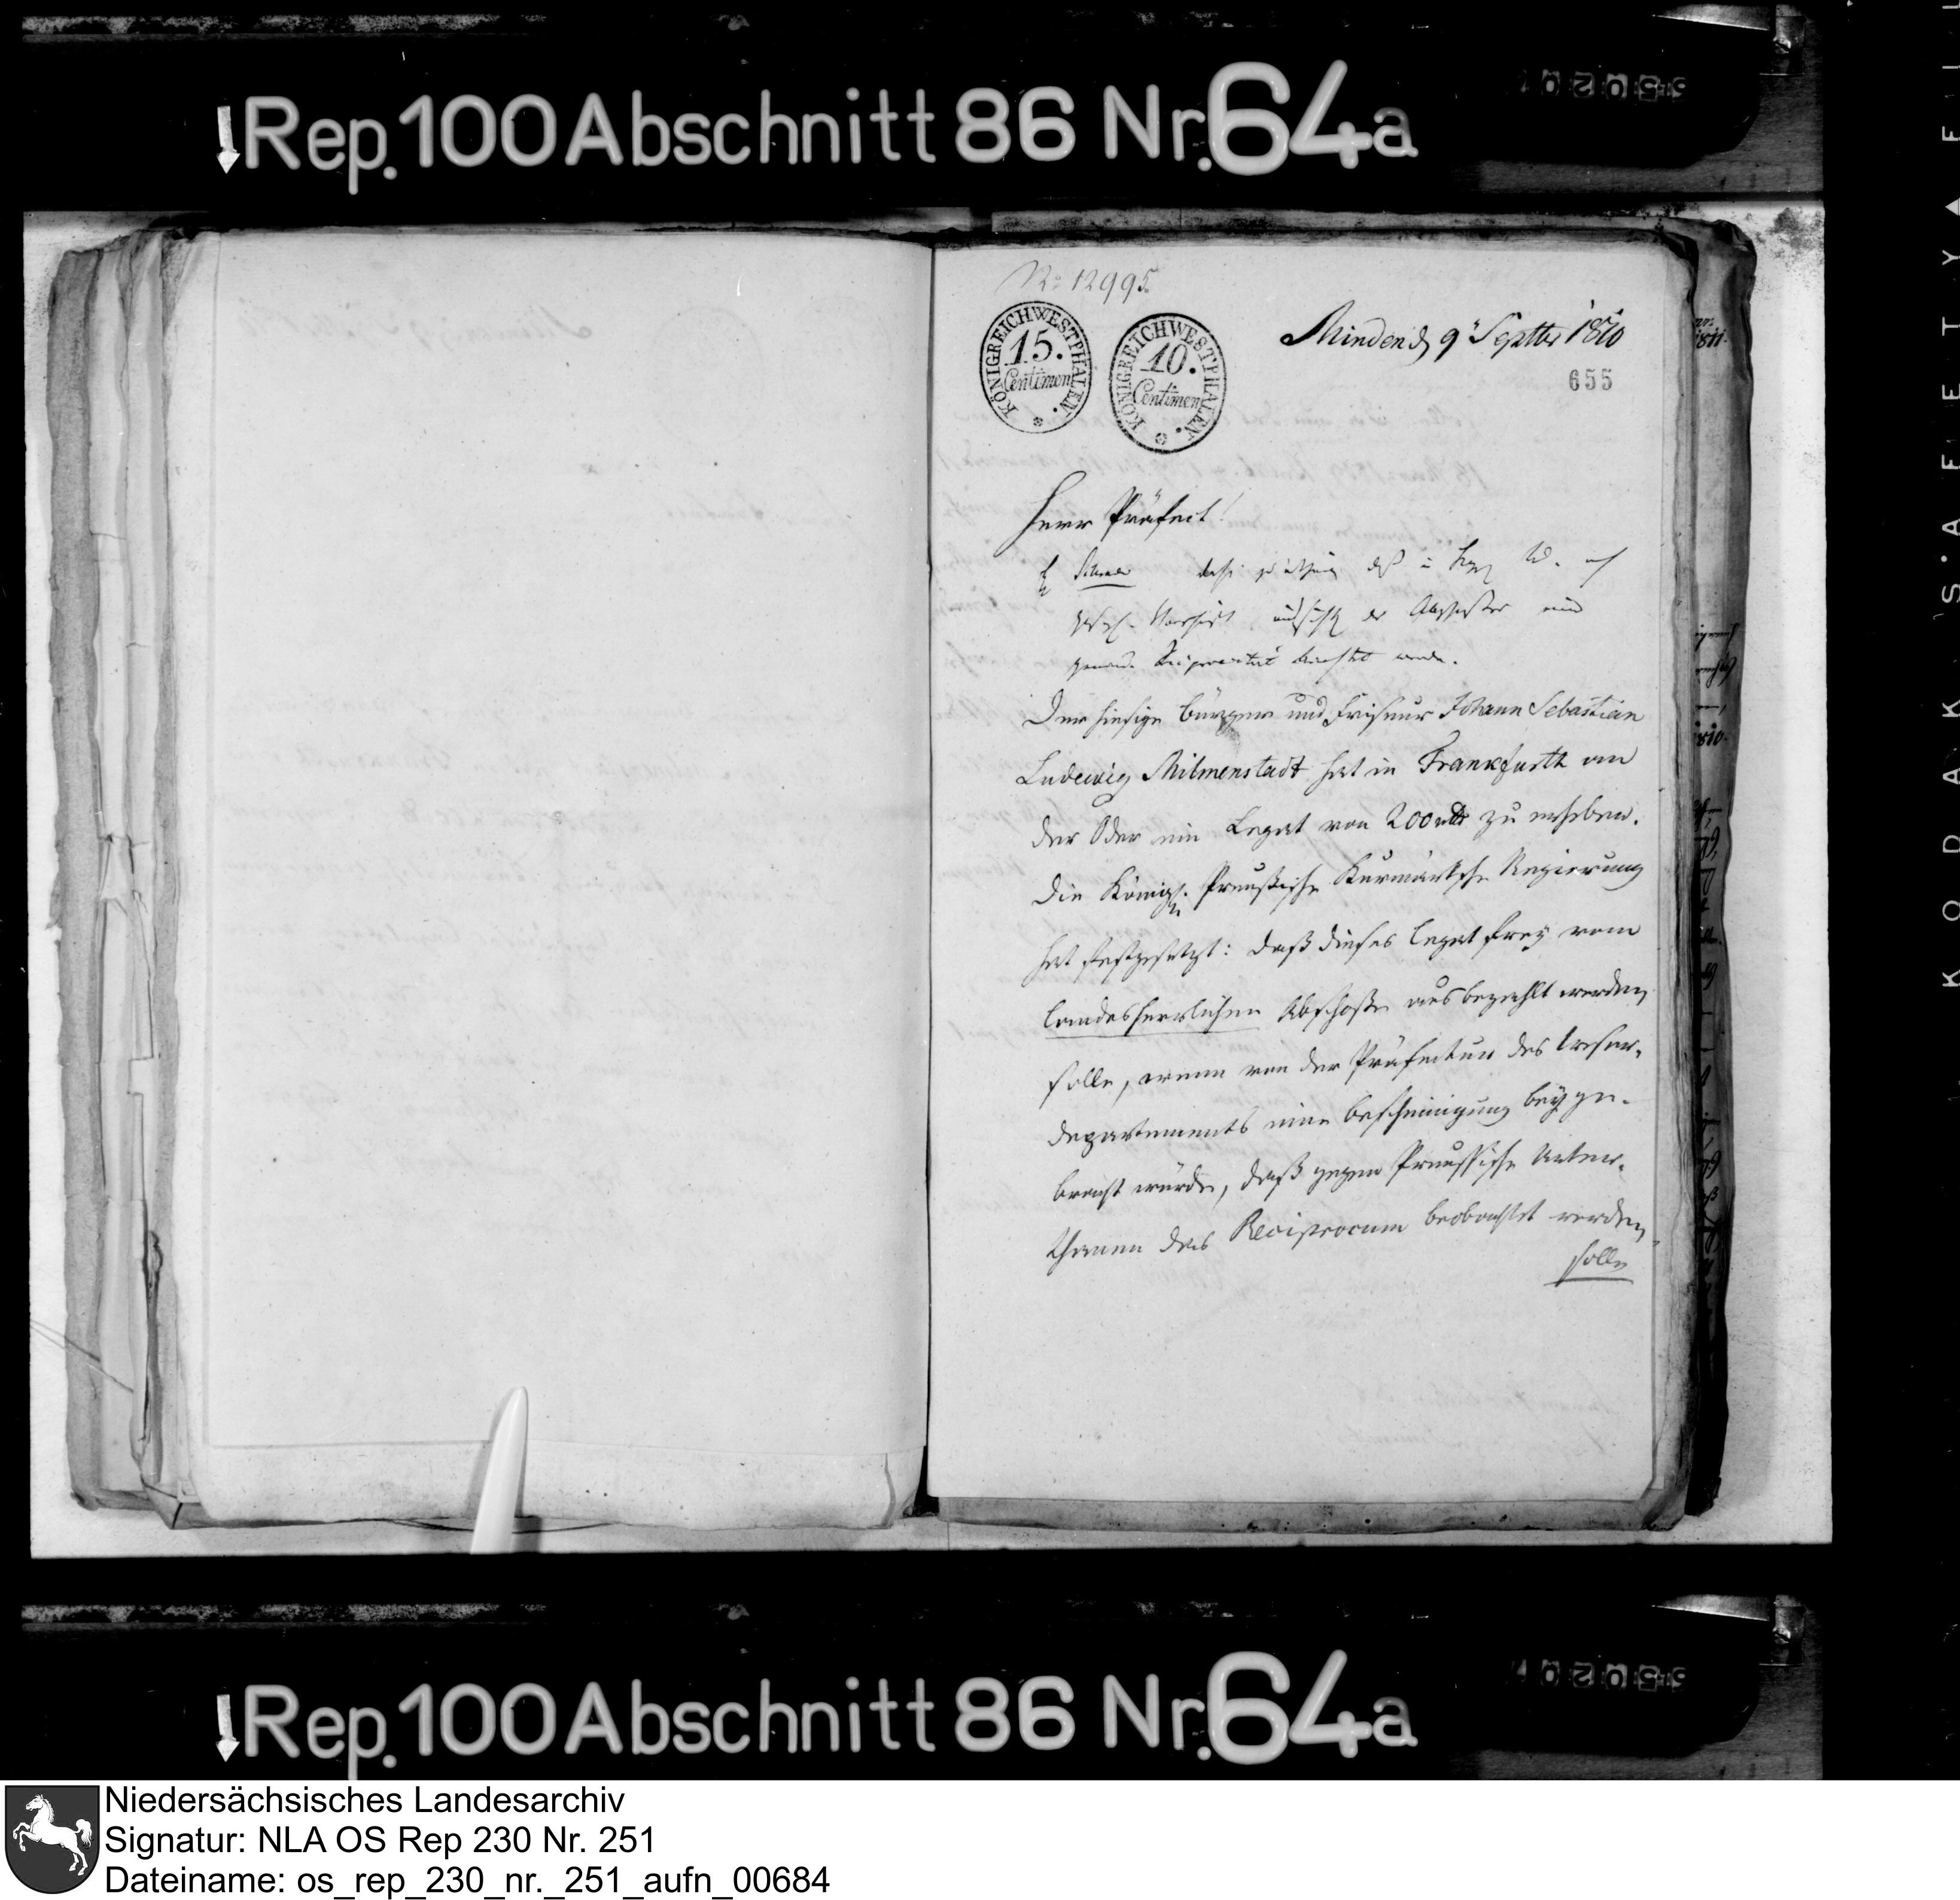 Rep. 100 Abschnitt 86 Nr. 64a
No 12995.
KÖNIGREICH WESTPHALEN.
15.
Centimen
KÖNIGREICH WESTPHALEN.
10.
Centimen
Minden d 9t Septbr 1810
655
Herr Präfect!
Der hiesige Bürger und Friseur Johann Sebastian
Ludewig Milmenstadt hat in Frankfurth an
der Oder ein Legat von 200 rthlr zu erheben.
Die Königl. Preußische Kurmärksche Regierung
hat festgesetzt: daß dieses Legat frey vom
landesherrlichen Abschosse ausbezahlt werden
solle, wenn von der Präfectur des Weser-
departements eine Bescheinigung beyge-
bracht würde, daß gegen Preussische Unter-
thanen das Reciprocum beobachtet werden
solle
KODAK SAFETY
Rep. 100 Abschnitt 86 Nr. 64a
Niedersächsisches Landesarchiv
Signatur: NLA OS Rep 230 Nr. 251
Dateiname: os_rep_230_nr._251_aufn_00684